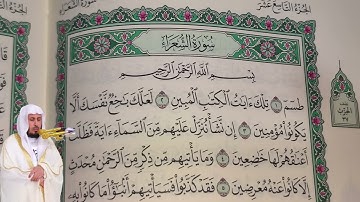 الجزء التاسع عشر
سورة الشعراء
بِسْمِ اللَّهِ الرَّحْمَٰنِ الرَّحِيمِ
طسٓمٓ ١ تِلْكَ ءَايَٰتُ ٱلْكِتَٰبِ ٱلْمُبِينِ ٢ لَعَلَّكَ بَٰخِعٌ نَّفْسَكَ أَلَّا
يَكُونُوا۟ مُؤْمِنِينَ ٣ إِن نَّشَأْ نُنَزِّلْ عَلَيْهِم مِّنَ ٱلسَّمَآءِ ءَايَةً فَظَلَّتْ
أَعْنَٰقُهُمْ لَهَا خَٰضِعِينَ ٤ وَمَا يَأْتِيهِم مِّن ذِكْرٍ مِّنَ ٱلرَّحْمَٰنِ مُحْدَثٍ
إِلَّا كَانُوا۟ عَنْهُ مُعْرِضِينَ ٥ فَقَدْ كَذَّبُوا۟ فَسَيَأْتِيهِمْ أَنۢبَٰٓؤُا۟ مَا كَانُوا۟ بِهِۦ